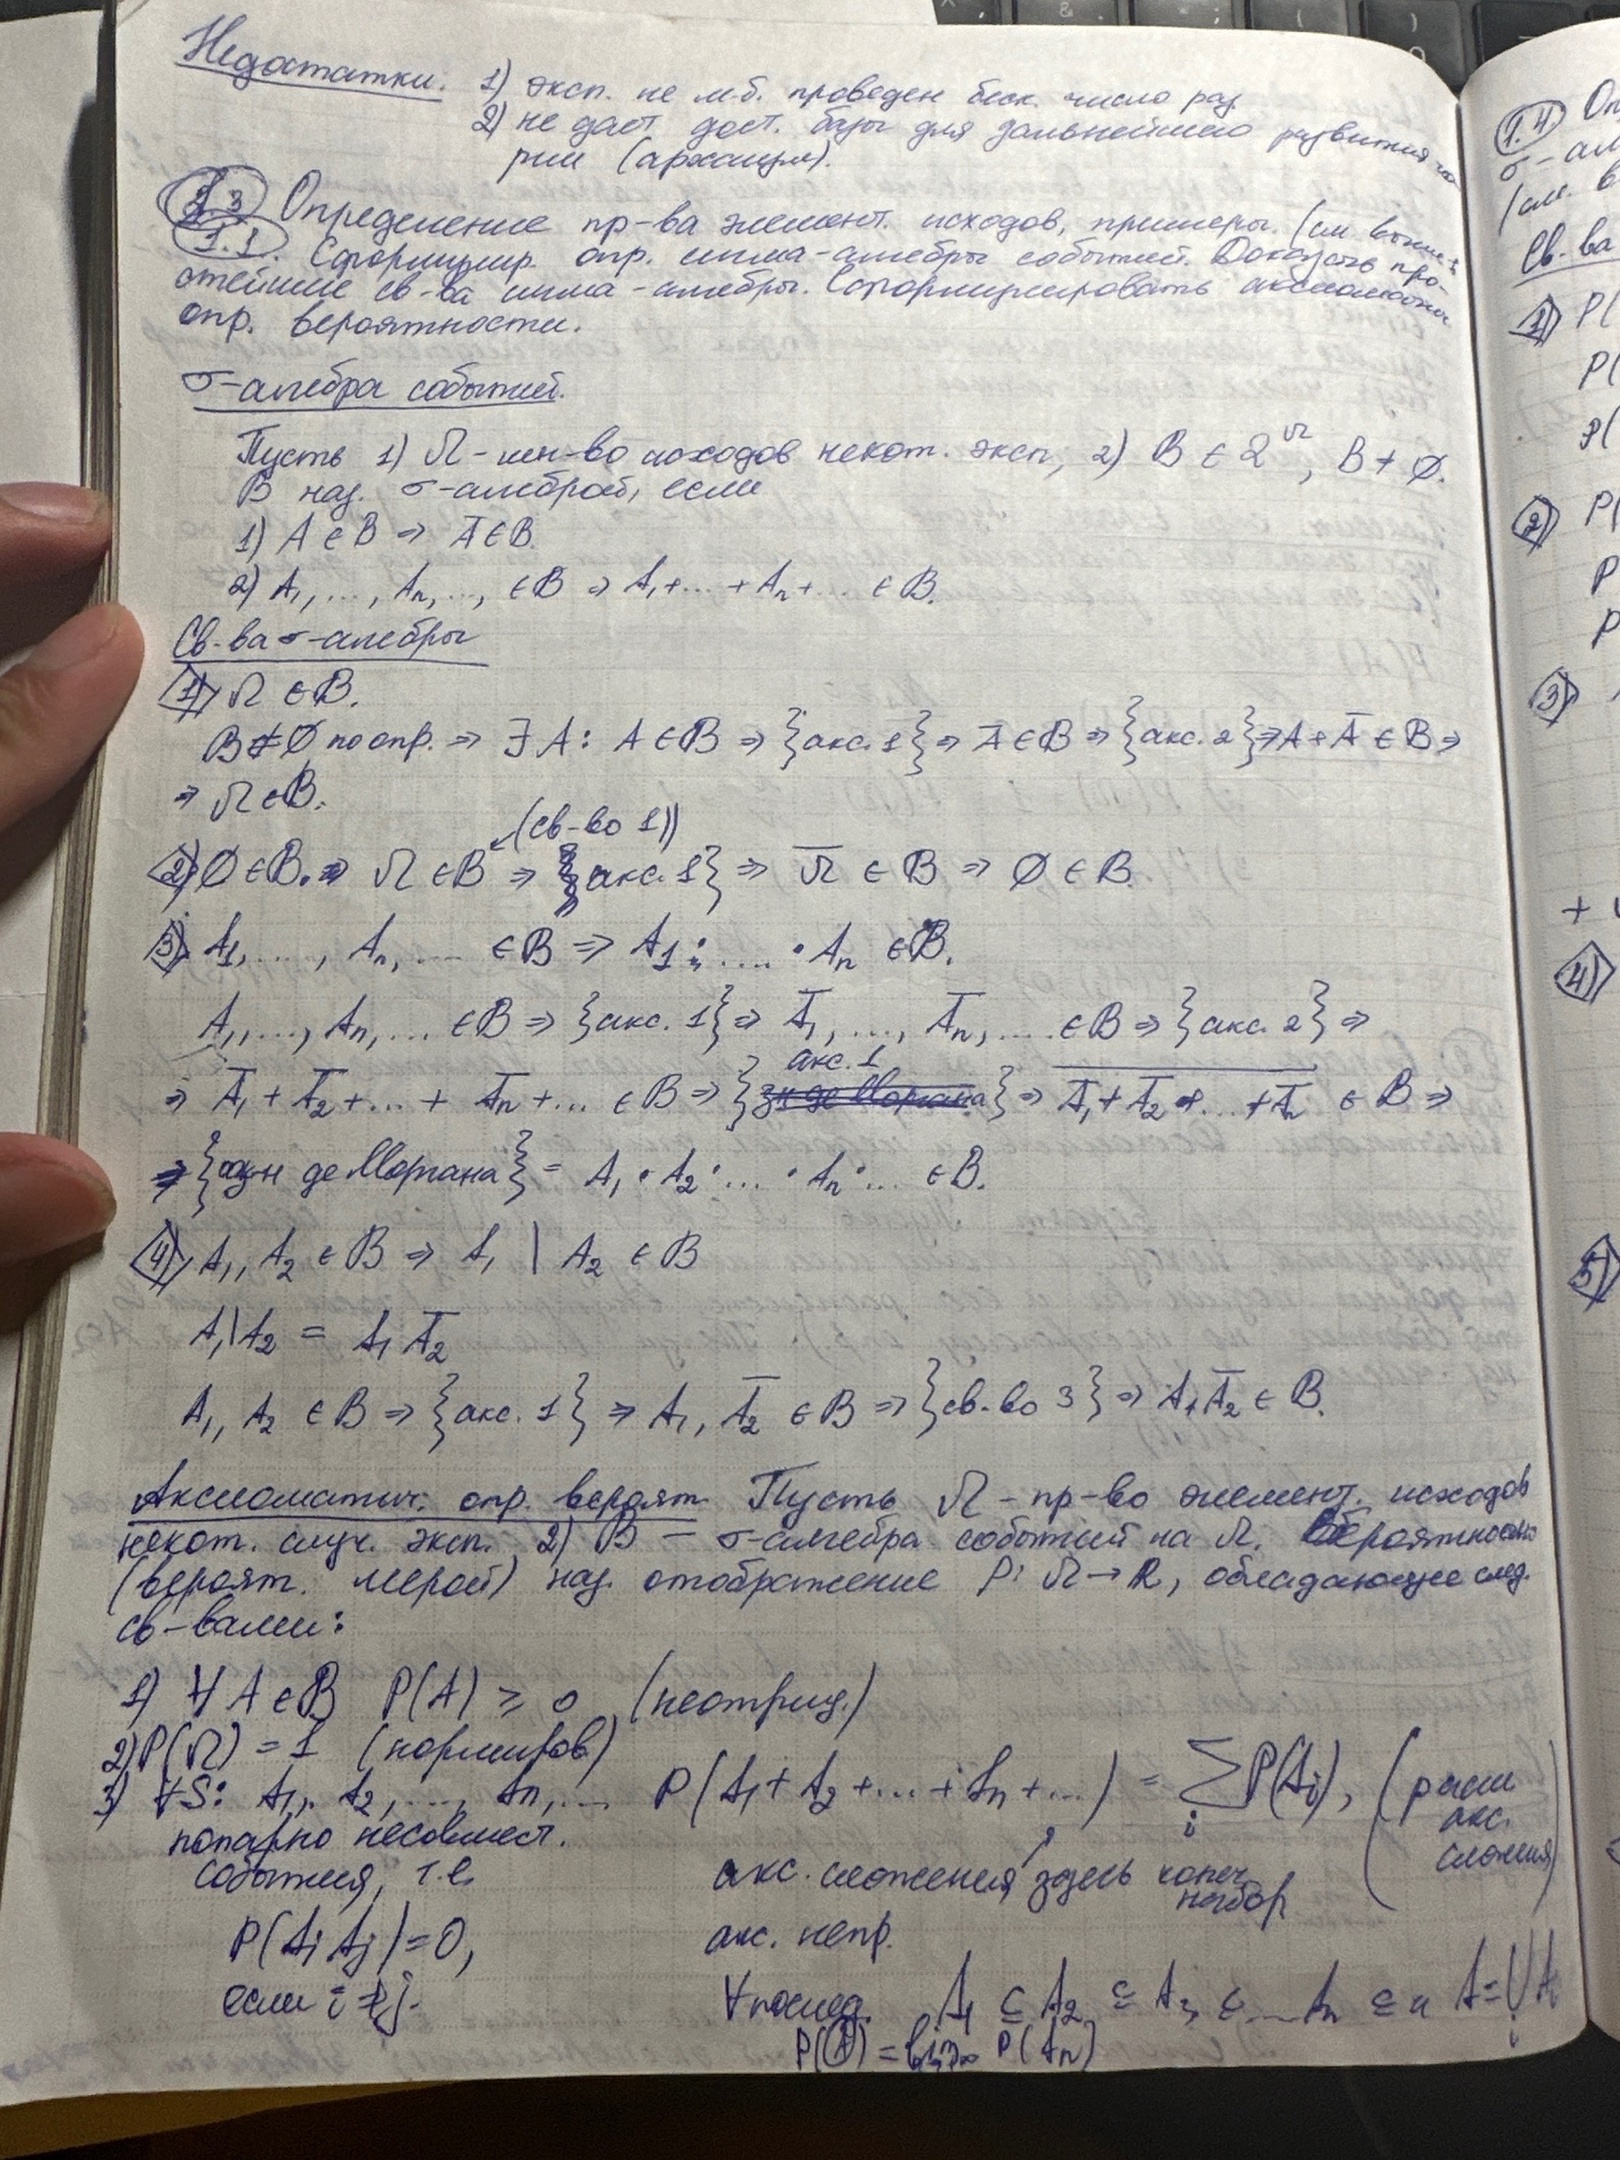 Недостатки. 1) эксп. не м.б. проведен беск. число раз
2) не дает дост. базы для дальнейшего развития
рии (архаизм).
1.3 Определение пр-ва элемент. исходов, примеры. (см выше
1.1. Сформулир. опр. сигма-алгебры событий. Доказать про-
стейшие св-ва сигма-алгебры. Сформулировать аксиоматич
опр. вероятности.
σ-алгебра событий.
Пусть 1) Ω - мн-во исходов некот. эксп, 2) B ∈ 2^Ω, B ≠ ∅.
B наз. σ-алгеброй, если
1) A ∈ B ⇒ A̅ ∈ B.
2) A₁, ..., Aₙ, ..., ∈ B ⇒ A₁ + ... + Aₙ + ... ∈ B.
Св-ва σ-алгебры
1) Ω ∈ B.
B ≠ ∅ по опр. ⇒ ∃ A: A ∈ B ⇒ {акс. 1} ⇒ A̅ ∈ B ⇒ {акс. 2} ⇒ A + A̅ ∈ B ⇒
⇒ Ω ∈ B.
(св-во 1))
2) ∅ ∈ B. ⇒ Ω ∈ B ⇒ {акс. 1} ⇒ Ω̅ ∈ B ⇒ ∅ ∈ B.
3) A₁, ...., Aₙ, .... ∈ B ⇒ A₁ · .... · Aₙ ∈ B.
A₁, ..., Aₙ, ... ∈ B ⇒ {акс. 1} ⇒ A̅₁, ...., A̅ₙ, ... ∈ B ⇒ {акс. 2} ⇒
акс. 1
⇒ A̅₁ + A̅₂ + ... + A̅ₙ + ... ∈ B ⇒ {зн де Моргана} ⇒ \overline{A̅₁ + A̅₂ + ... + A̅ₙ} ∈ B ⇒
⇒ {зн де Моргана} = A₁ · A₂ · ... · Aₙ · ... ∈ B.
4) A₁, A₂ ∈ B ⇒ A₁ \ A₂ ∈ B
A₁\A₂ = A₁ A̅₂
A₁, A₂ ∈ B ⇒ {акс. 1} ⇒ A₁, A̅₂ ∈ B ⇒ {св-во 3} ⇒ A₁A̅₂ ∈ B.
Аксиоматич. опр. вероят. Пусть Ω - пр-во элемент. исходов
некот. случ. эксп. 2) B - σ-алгебра событий на Ω. Вероятностью
(вероят. мерой) наз. отображение P: Ω → R, обладающее след.
св-вами:
1) ∀ A ∈ B P(A) ≥ 0 (неотриц.)
2) P(Ω) = 1 (нормиров)
3) ∀S: A₁, A₂, ..., Aₙ, ... P(A₁ + A₂ + ... + Aₙ + ...) = ∑ᵢ P(Aᵢ), (расш
попарно несовмест. акс.
события, т.е. акс. сложения здесь конеч сложения)
набор
P(Aᵢ Aⱼ) = 0, акс. непр.
если i ≠ j. ∀ послед. A₁ ⊆ A₂ ⊆ A₃ ⊆ ... Aₙ ⊆ и A = ⋃ᵢ A
P(A) = lim P(Aₙ)
1.4 Оп
σ-ал
(см. в
Св-ва
1) P(
P(
P(
2) P(
P
P
3)
+
4)
5)